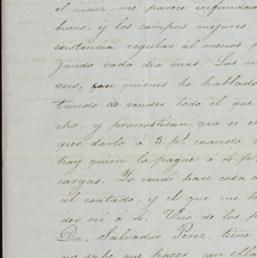 el maiz, me parece infundad
bueno, y los campos mejores.
existencia regular al menos p
zando cada dia mas. Las m
xeus, con quienes he hablado
tando de vender todo el que
cho, y pronostican que si e
qué darlo á 3 p.s cuando
hay quien lo pague á 4 p.
cargas. Yo vendí hace cosa
al contado, y el que me
der ni á 4. Uno de los p
Dn. Salvador Perez, tiene
no sabe que hacer con ella